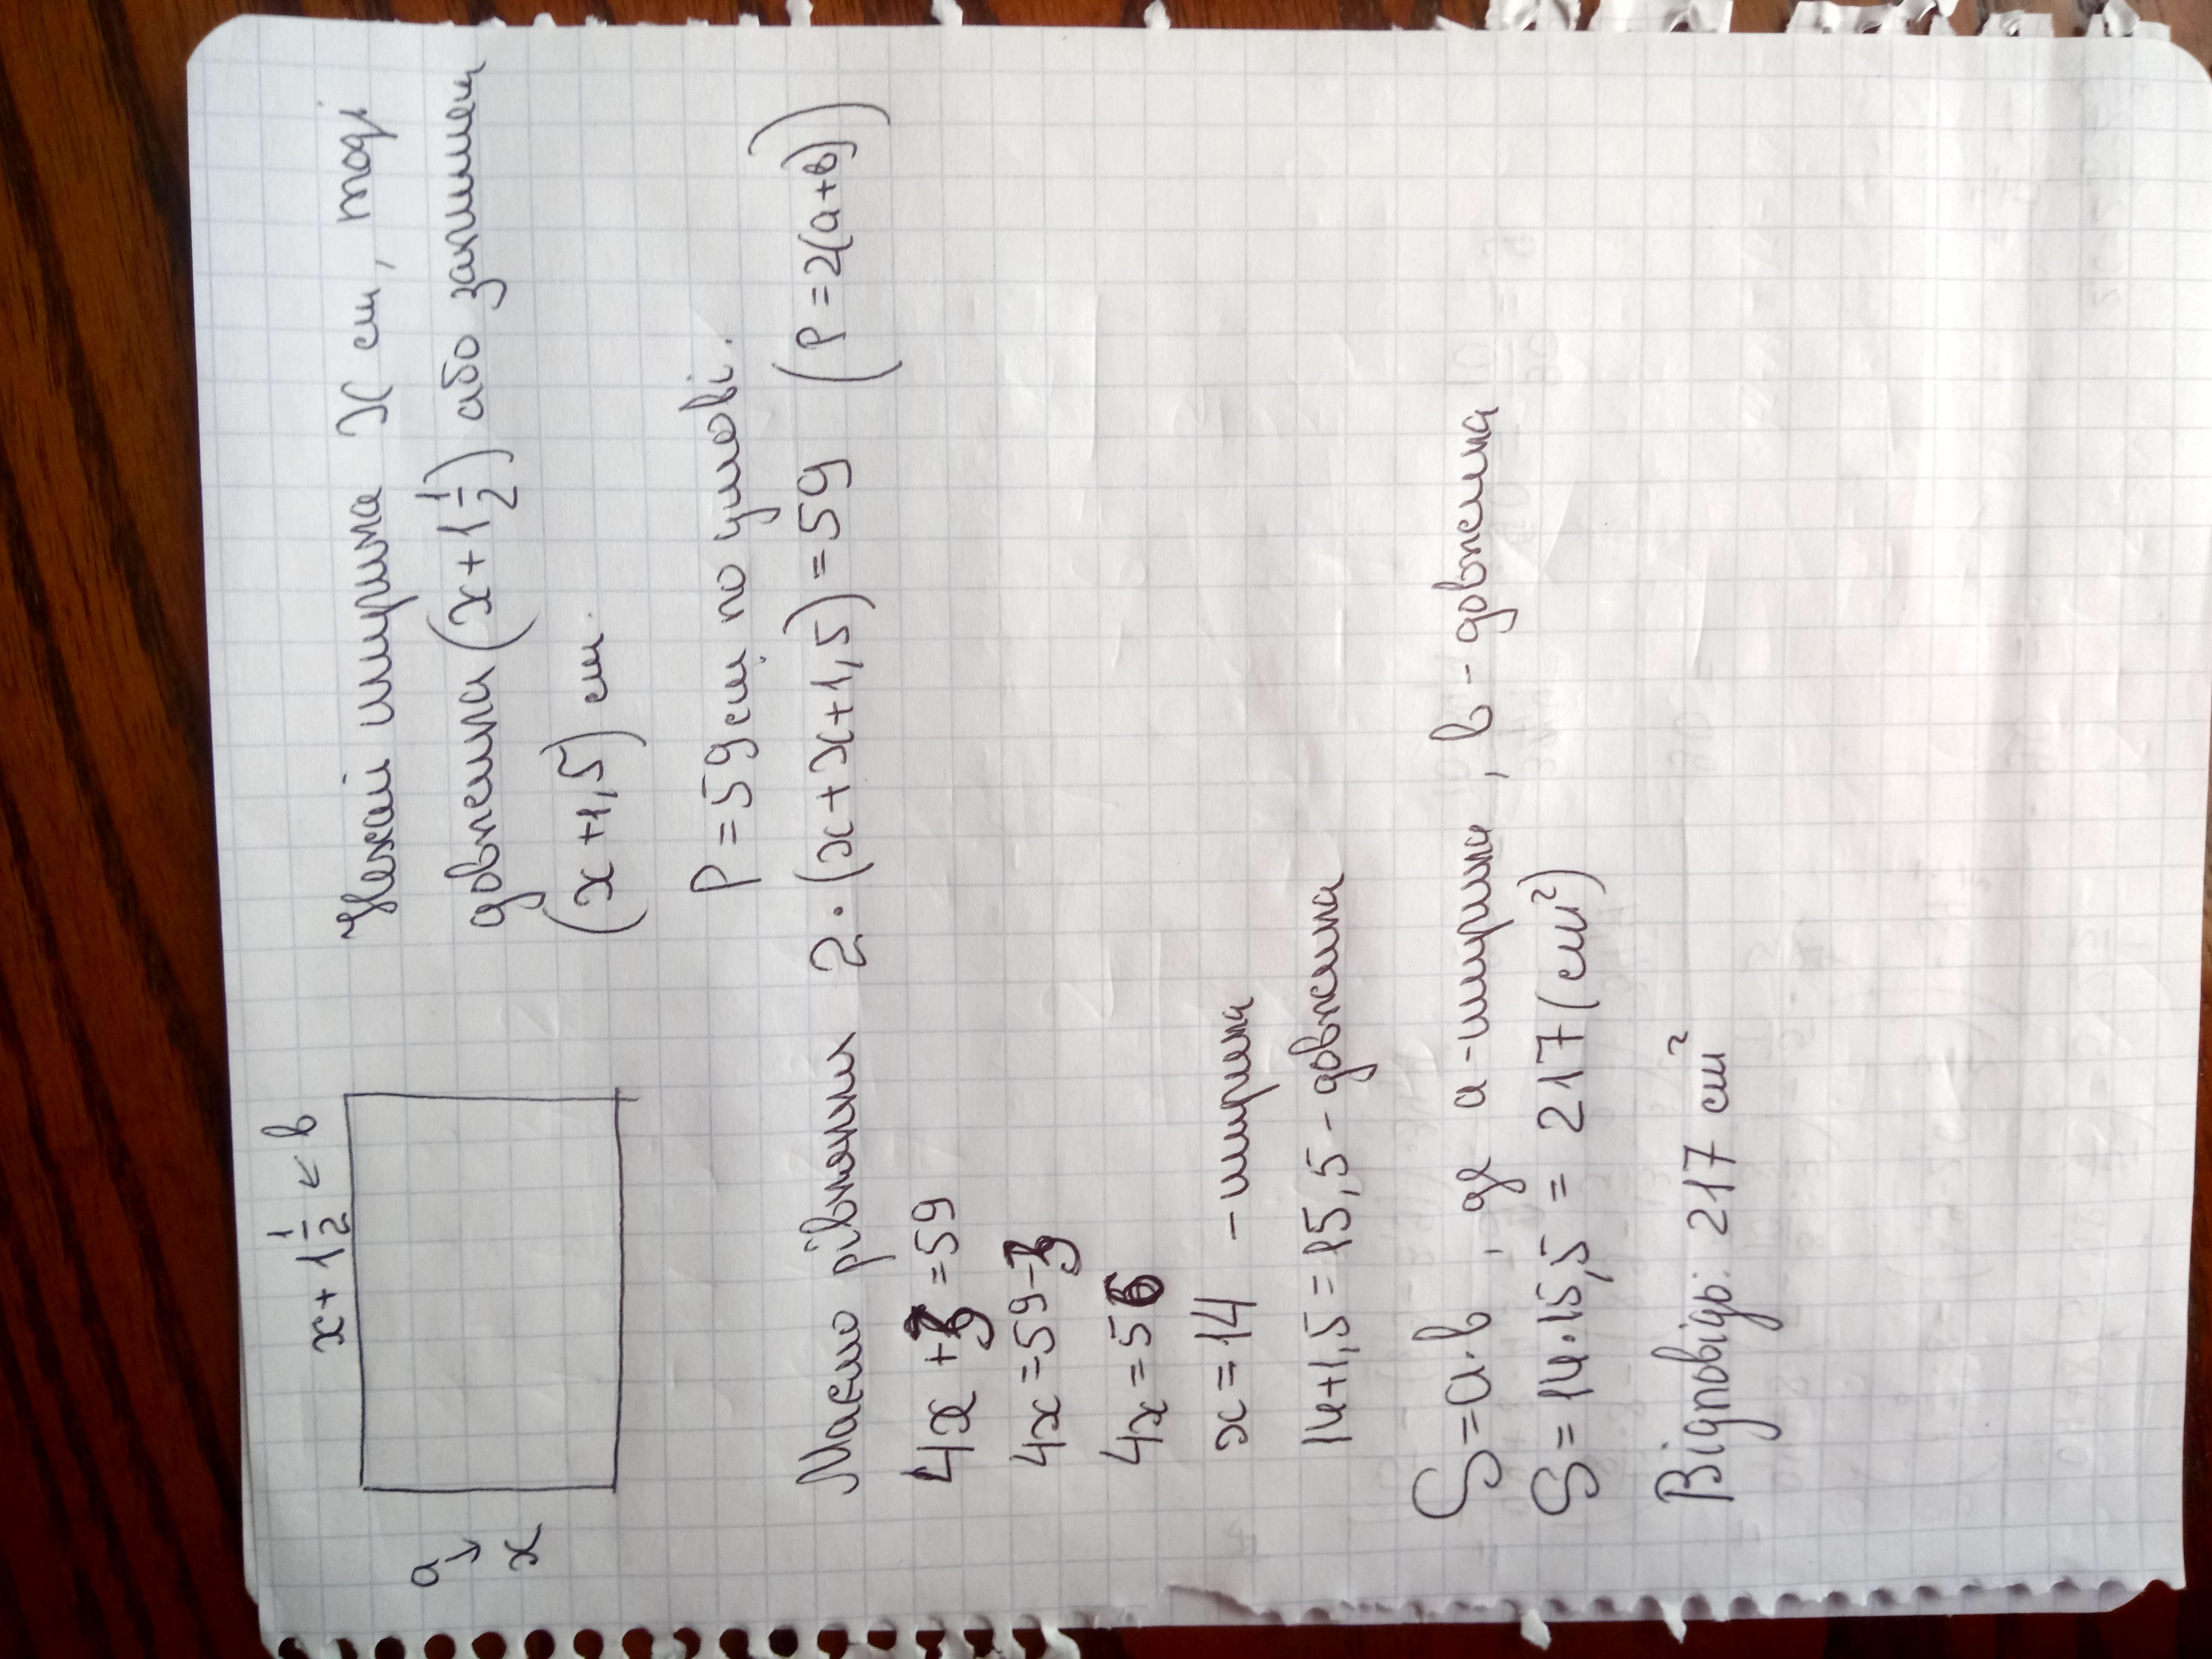 x + 1 1/2 ← b
a
↓
x
Нехай ширина x см, тоді
довжина (x + 1 1/2) або запишем
(x + 1,5) см.
P = 59 см по умові.
Маємо рівняння 2 · (x + x + 1,5) = 59 (P = 2(a + b))
4x + 3 = 59
4x = 59 - 3
4x = 56
x = 14 - ширина
14 + 1,5 = 15,5 - довжина
S = a · b , де a - ширина, b - довжина
S = 14 · 15,5 = 217 (см²)
Відповідь: 217 см²